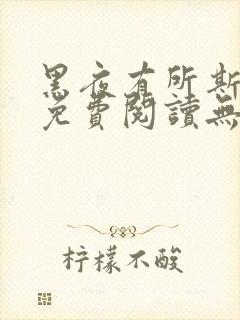 黑夜有所斯
免費閱讀無
柠檬不酸